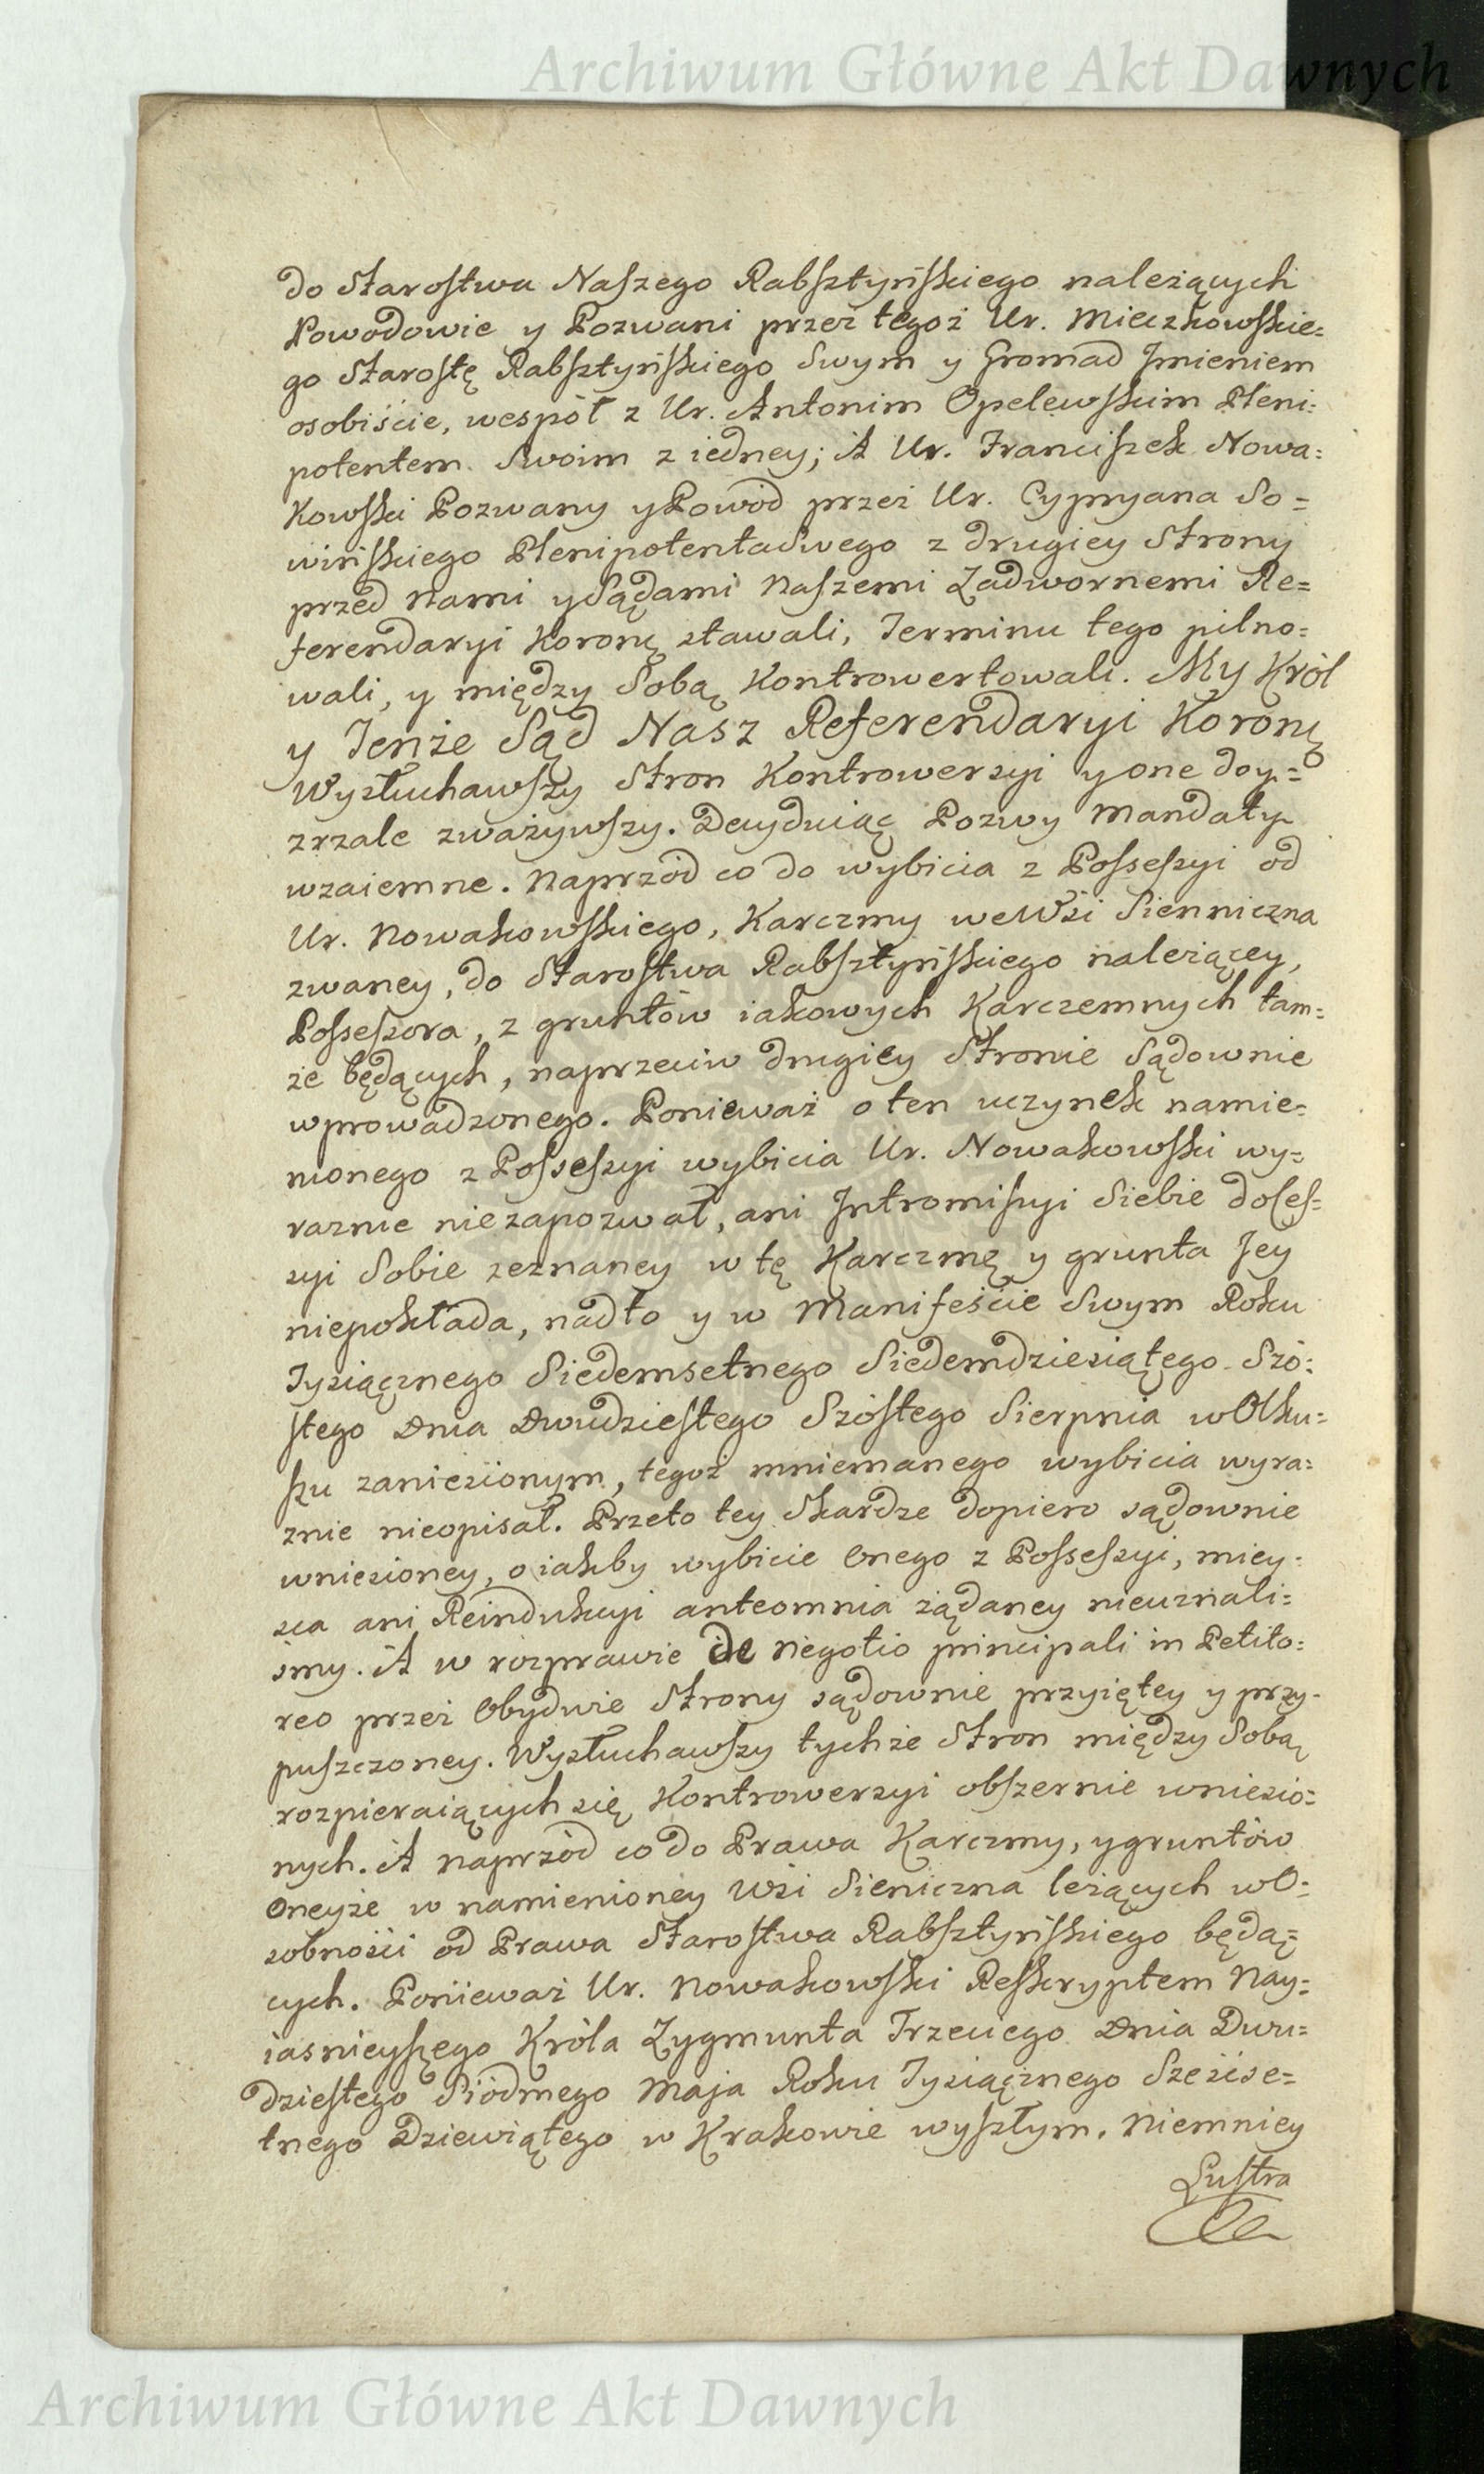 Archiwum Główne Akt Dawnych
do Starostwa Naszego Rabsztyńskiego należących
Powodowie y Pozwani przez tegoż Ur. Mieczkowskie=
go Starostę Rabsztyńskiego Swym y Gromad Jmieniem
osobiście, wespół z Ur. Antonim Opelewskim Pleni=
potentem Swoim z iedney; A Ur. Franciszek Nowa=
kowski Pozwany y Powód przez Ur. Cypryana So=
wińskiego Plenipotenta Swego z drugiey Strony
przed Nami y Sądami Naszemi Zadwornemi Re=
ferendaryi Koronę stawali, Terminu tego pilno=
wali, y między Sobą Kontrowertowali. My Król
y Tenże Sąd Nasz Referendaryi Koronę
Wysłuchawszy Stron Kontrowersyi y one doy=
zrzale zważywszy. Decyduiąc Pozwy Mandaty
wzaiemne. Naprzód co do wybicia z Possessyi od
Ur. Nowakowskiego, Karczmy we Wsi Sienniczna
zwaney, do Starostwa Rabsztyńskiego należącey,
Possessora, z gruntów iakowych Karczemnych tam=
że będących, naprzeciw drugiey Stronie Sądownie
wprowadzonego. Ponieważ o ten uczynek namie=
nionego z Possessyi wybicia Ur. Nowakowski wy=
raznie niezapozwał, ani Jntromissyi Siebie do Ces=
syi Sobie zeznaney w tę Karczmę y grunta Jey
niepokłada, nadto y w Manifeście Swym Roku
Tysiącznego Siedemsetnego Siedemdziesiątego Szó=
stego Dnia Dwudziestego Szóstego Sierpnia w Olku=
szu zaniesionym, tegoż mniemanego wybicia wyra=
znie nieopisał. Przeto tey Skardze dopiero sądownie
wniesioney, o iakby wybicie Onego z Possessyi, miey=
sca ani Reindukcyi anteomnia żądaney nieuznali=
śmy. A w rozprawie de Negotio principali in Petito=
reo przez Obydwie Strony sądownie przyiętey y przy=
puszczoney. Wysłuchawszy tychże Stron między Sobą
rozpieraiących się Kontrowersyi obszernie wniesio=
nych. A naprzód co do Prawa Karczmy, y gruntów
Oneyże w namienioney Wsi Sieniczna leżących w O=
sobności od Prawa Starostwa Rabsztyńskiego będą=
cych. Ponieważ Ur. Nowakowski Reskryptem Nay=
iasnieyszego Króla Zygmunta Trzeciego Dnia Dwu=
dziestego Siódmego Maja Roku Tysiącznego Sześćse=
tnego Dziewiątego w Krakowie wyszłym. Niemniey
Lustra
Archiwum Główne Akt Dawnych